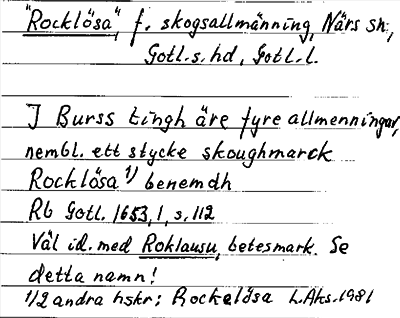 "Rocklösa", f. skogsallmänning, Närs sn,
Gotl. s. hd, Gotl. l.
I Burss tingh äre fyre allmenningar,
nembl. ett stycke skoughmarck
Rocklösa 1/ benemdh
Rb Gotl. 1653, 1, s. 112
Väl id. med Roklausu, betesmark. Se
detta namn!
1/2 andra hskr: Rockelösa L. Aks. 1981